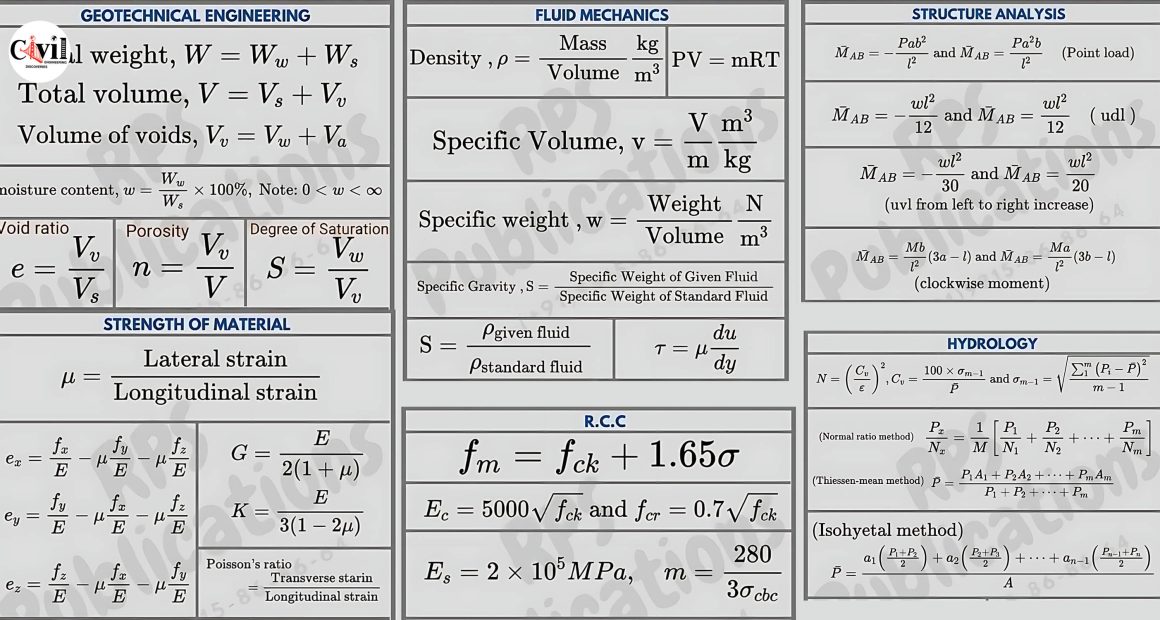 GEOTECHNICAL ENGINEERING
Civil
ENGINEERING
DISCOVERIES
al weight, W = W_w + W_s
Total volume, V = V_s + V_v
Volume of voids, V_v = V_w + V_a
moisture content, w = W_w / W_s × 100%, Note: 0 < w < ∞
Void ratio
e = V_v / V_s
Porosity
n = V_v / V
Degree of Saturation
S = V_w / V_v
STRENGTH OF MATERIAL
μ = Lateral strain / Longitudinal strain
e_x = f_x / E − μ f_y / E − μ f_z / E
e_y = f_y / E − μ f_x / E − μ f_z / E
e_z = f_z / E − μ f_x / E − μ f_y / E
G = E / 2(1 + μ)
K = E / 3(1 − 2μ)
Poisson's ratio
= Transverse starin / Longitudinal strain
FLUID MECHANICS
Density , ρ = Mass / Volume kg / m³
PV = mRT
Specific Volume, v = V / m m³ / kg
Specific weight , w = Weight / Volume N / m³
Specific Gravity , S = Specific Weight of Given Fluid / Specific Weight of Standard Fluid
S = ρ_given fluid / ρ_standard fluid
τ = μ du / dy
R.C.C
f_m = f_ck + 1.65σ
E_c = 5000√f_ck and f_cr = 0.7√f_ck
E_s = 2 × 10⁵ MPa, m = 280 / 3σ_cbc
STRUCTURE ANALYSIS
M̄_AB = − Pab² / l² and M̄_AB = Pa²b / l² (Point load)
M̄_AB = − wl² / 12 and M̄_AB = wl² / 12 ( udl )
M̄_AB = − wl² / 30 and M̄_AB = wl² / 20
(uvl from left to right increase)
M̄_AB = Mb / l² (3a − l) and M̄_AB = Ma / l² (3b − l)
(clockwise moment)
HYDROLOGY
N = (C_v / ε)², C_v = 100 × σ_m−1 / P̄ and σ_m−1 = √(∑₁^m (P_i − P̄)² / m − 1)
(Normal ratio method) P_x / N_x = 1 / M [P_1 / N_1 + P_2 / N_2 + ··· + P_m / N_m]
(Thiessen-mean method) P̄ = P_1A_1 + P_2A_2 + ··· + P_mA_m / P_1 + P_2 + ··· + P_m
(Isohyetal method)
P̄ = a_1(P_1+P_2 / 2) + a_2(P_2+P_3 / 2) + ··· + a_n−1(P_n−1+P_n / 2) / A
RPS
Publications